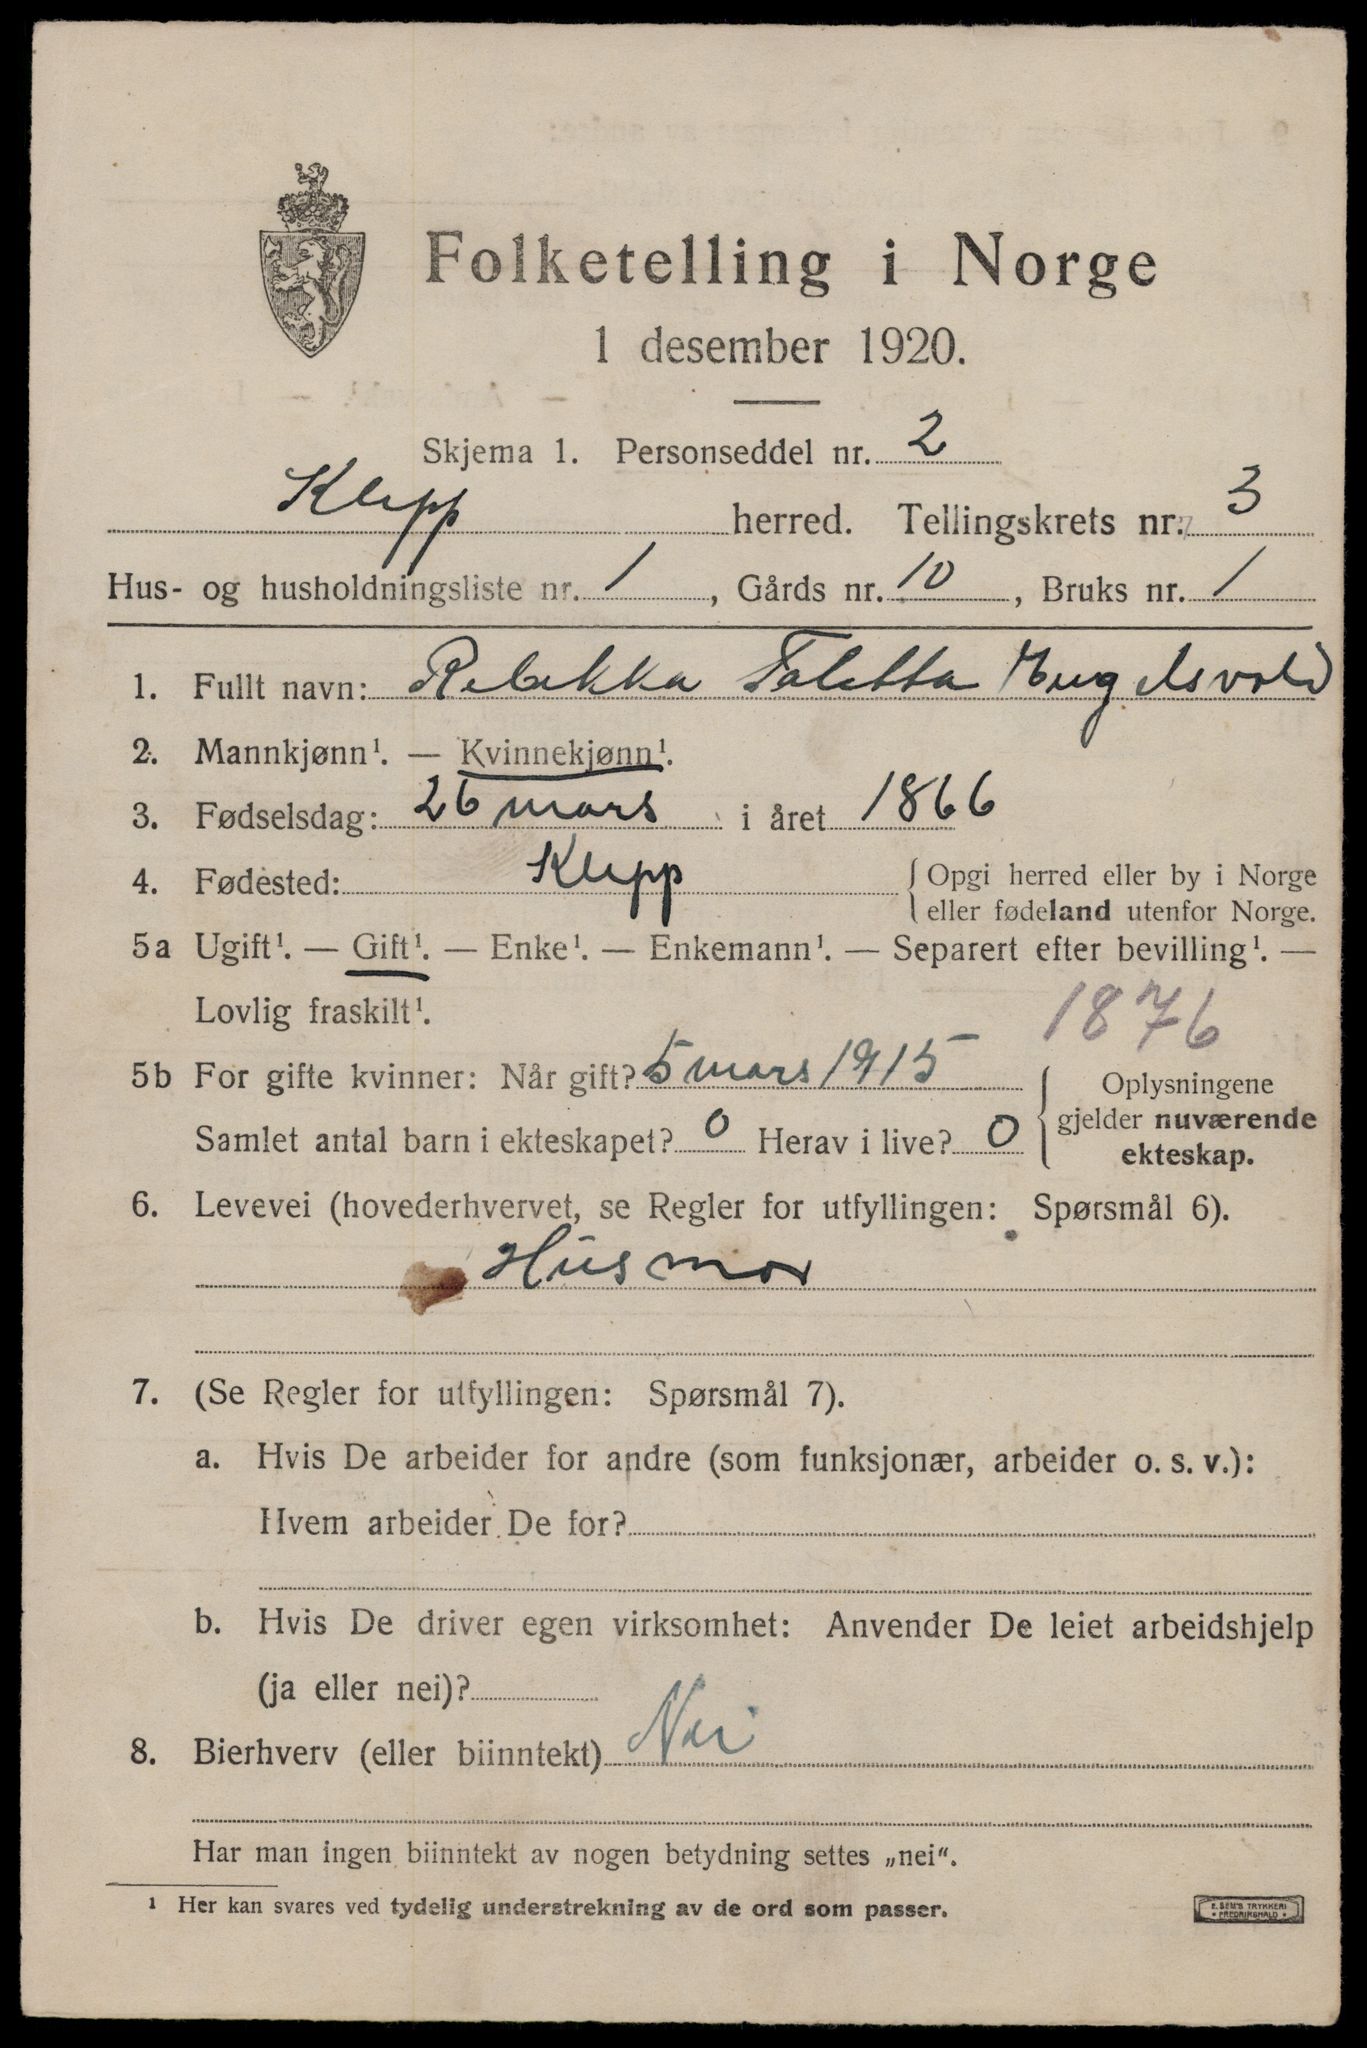 Folketelling i Norge
1 desember 1920.
Skjema 1. Personseddel nr. 2
Klepp herred. Tellingskrets nr. 3
Hus- og husholdningsliste nr. 1, Gårds nr. 10, Bruks nr. 1
1. Fullt navn: Rebekka Taletta Engelsvold
2. Mannkjønn¹. — Kvinnekjønn¹.
3. Fødselsdag: 26 mars i året 1866
4. Fødested: Klepp { Opgi herred eller by i Norge
eller fødeland utenfor Norge.
5a Ugift¹. — Gift¹. — Enke¹. — Enkemann¹. — Separert efter bevilling¹. —
Lovlig fraskilt¹. 1876
5b For gifte kvinner: Når gift? 5 mars 1915 { Oplysningene
gjelder nuværende
ekteskap.
Samlet antal barn i ekteskapet? 0 Herav i live? 0
6. Levevei (hovederhvervet, se Regler for utfyllingen: Spørsmål 6).
Husmor
7. (Se Regler for utfyllingen: Spørsmål 7).
a. Hvis De arbeider for andre (som funksjonær, arbeider o. s. v.):
Hvem arbeider De for?
b. Hvis De driver egen virksomhet: Anvender De leiet arbeidshjelp
(ja eller nei)?
8. Bierhverv (eller biinntekt) Nei
Har man ingen biinntekt av nogen betydning settes „nei“.
¹ Her kan svares ved tydelig understrekning av de ord som passer.
E. SEM'S TRYKKERI
FREDRIKSHALD